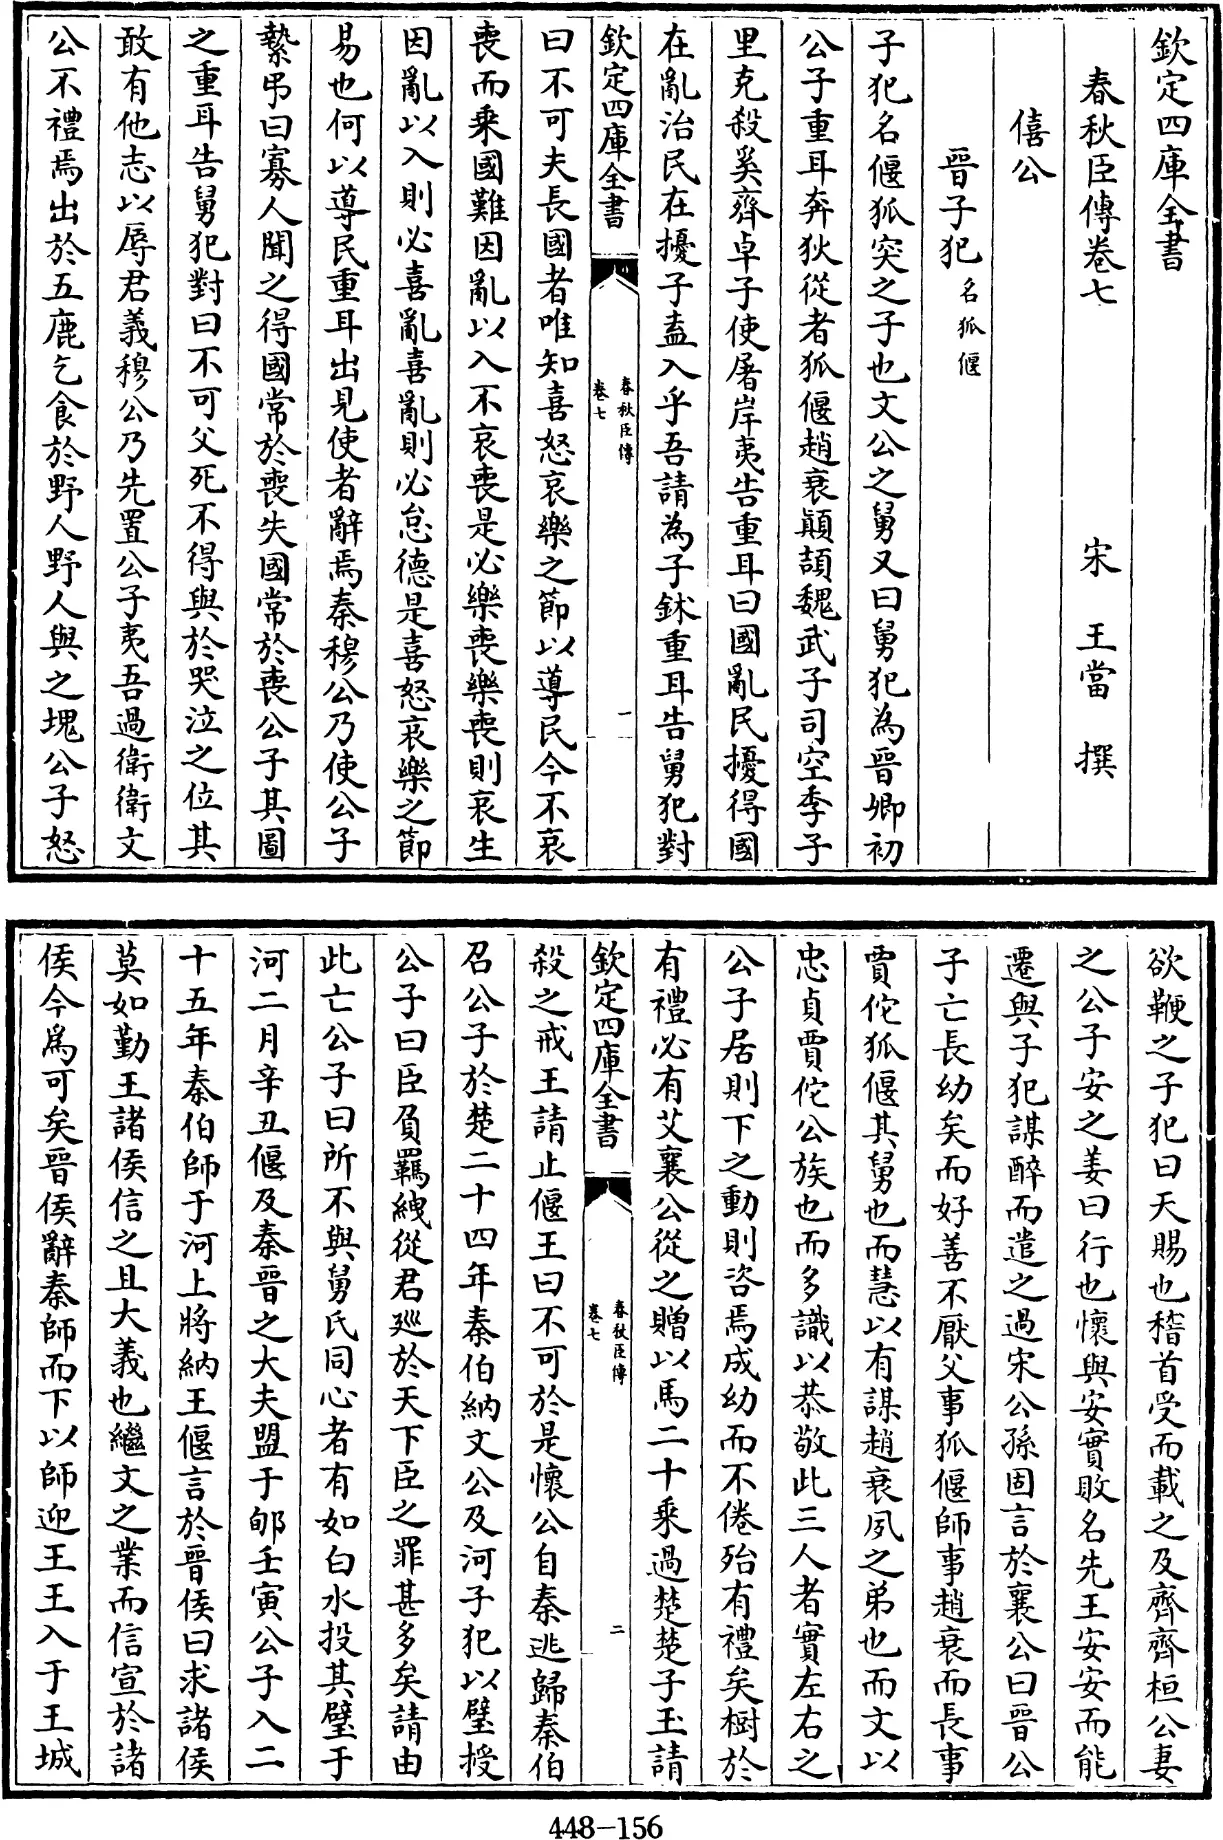 欽定四庫全書
春秋臣傳卷七
宋 王當 撰
僖公
晉子犯名狐偃
子犯名偃狐突之子也文公之舅又曰舅犯為晉卿初
公子重耳奔狄從者狐偃趙衰顛頡魏武子司空季子
里克殺奚齊卓子使屠岸夷告重耳曰國亂民擾得國
在亂治民在擾子盍入乎吾請為子鉥重耳告舅犯對
欽定四庫全書
春秋臣傳
卷七
一
曰不可夫長國者唯知喜怒哀樂之節以導民今不哀
喪而乘國難因亂以入不哀喪是必樂喪樂喪則哀生
因亂以入則必喜亂喜亂則必怠德是喜怒哀樂之節
易也何以導民重耳出見使者辭焉秦穆公乃使公子
縶弔曰寡人聞之得國常於喪失國常於喪公子其圖
之重耳告舅犯對曰不可父死不得與於哭泣之位其
敢有他志以辱君義穆公乃先置公子夷吾過衛衛文
公不禮焉出於五鹿乞食於野人野人與之塊公子怒
欲鞭之子犯曰天賜也稽首受而載之及齊齊桓公妻
之公子安之姜曰行也懷與安實敗名先王安安而能
遷與子犯謀醉而遣之過宋公孫固言於襄公曰晉公
子亡長幼矣而好善不厭父事狐偃師事趙衰而長事
賈佗狐偃其舅也而慧以有謀趙衰夙之弟也而文以
忠貞賈佗公族也而多識以恭敬此三人者實左右之
公子居則下之動則咨焉成幼而不倦殆有禮矣樹於
有禮必有艾襄公從之贈以馬二十乘過楚楚子玉請
欽定四庫全書
春秋臣傳
卷七
二
殺之戒王請止偃王曰不可於是懷公自秦逃歸秦伯
召公子於楚二十四年秦伯納文公及河子犯以璧授
公子曰臣負羈絏從君廵於天下臣之罪甚多矣請由
此亡公子曰所不與舅氏同心者有如白水投其璧于
河二月辛丑偃及秦晉之大夫盟于郇壬寅公子入二
十五年秦伯師于河上將納王偃言於晉侯曰求諸侯
莫如勤王諸侯信之且大義也繼文之業而信宣於諸
侯今爲可矣晉侯辭秦師而下以師迎王王入于王城
448-156